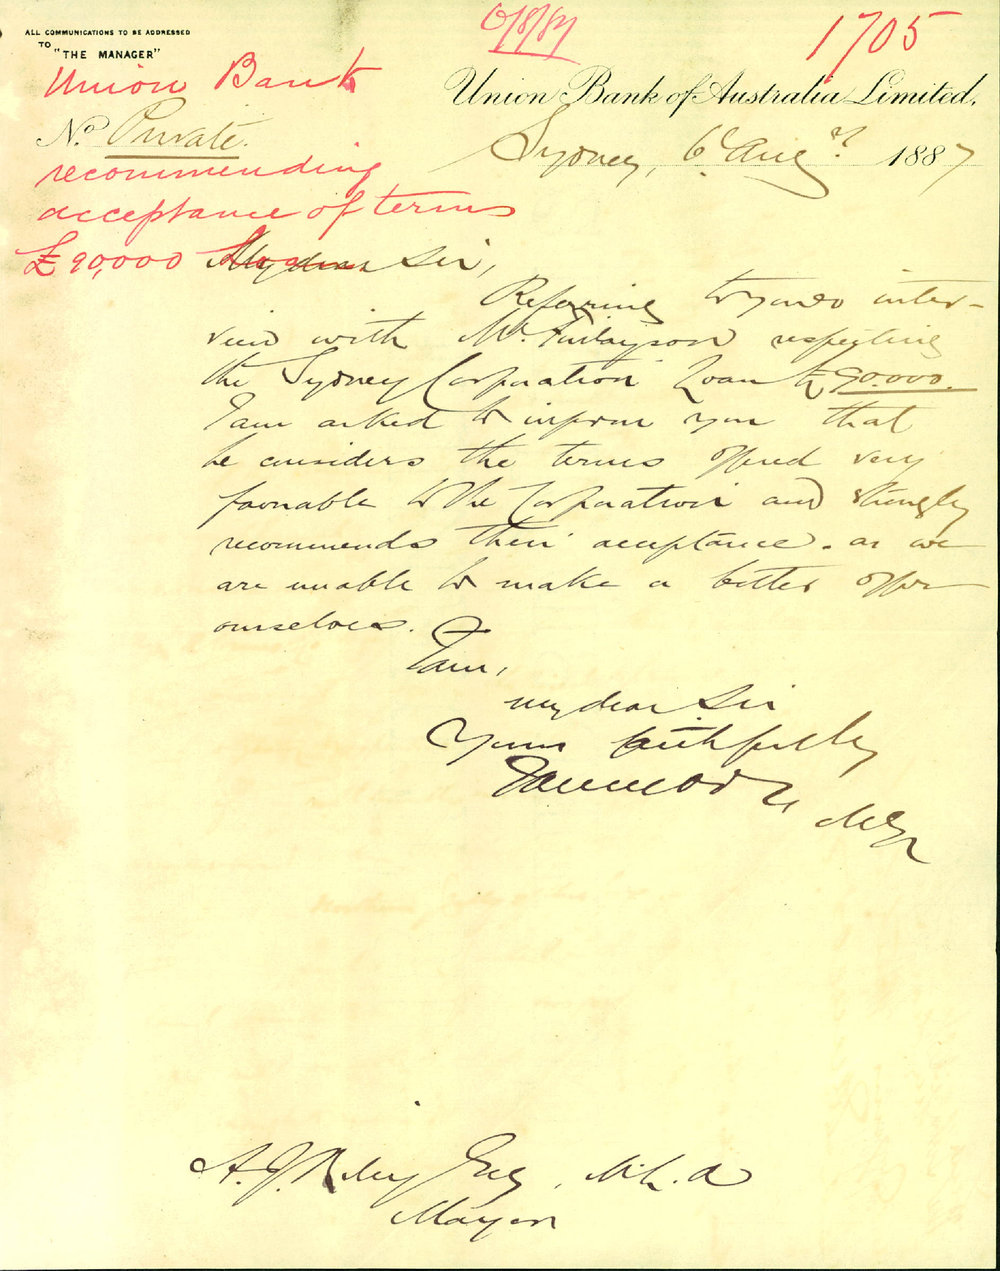 ALL COMMUNICATIONS TO BE ADDRESSED
TO
"THE MANAGER"
6/8/87
1705
Union Bank
Union Bank of Australia Limited,
No Private.
Sydney, 6 Augt 1887
recommending
acceptance of terms
£90,000 Loan
My dear Sir,
Referring to your inter-
view with Mr Finlayson respecting
the Sydney Corporation Loan £90.000.
I am asked to inform you that
he considers the terms offered very
favorable to the Corporation and strongly
recommends their acceptance. as we
are unable to make a better offer
ourselves.
I am,
my dear Sir
Yours faithfully
Mgr
A. J. Riley Esq. M.L.A
Mayor